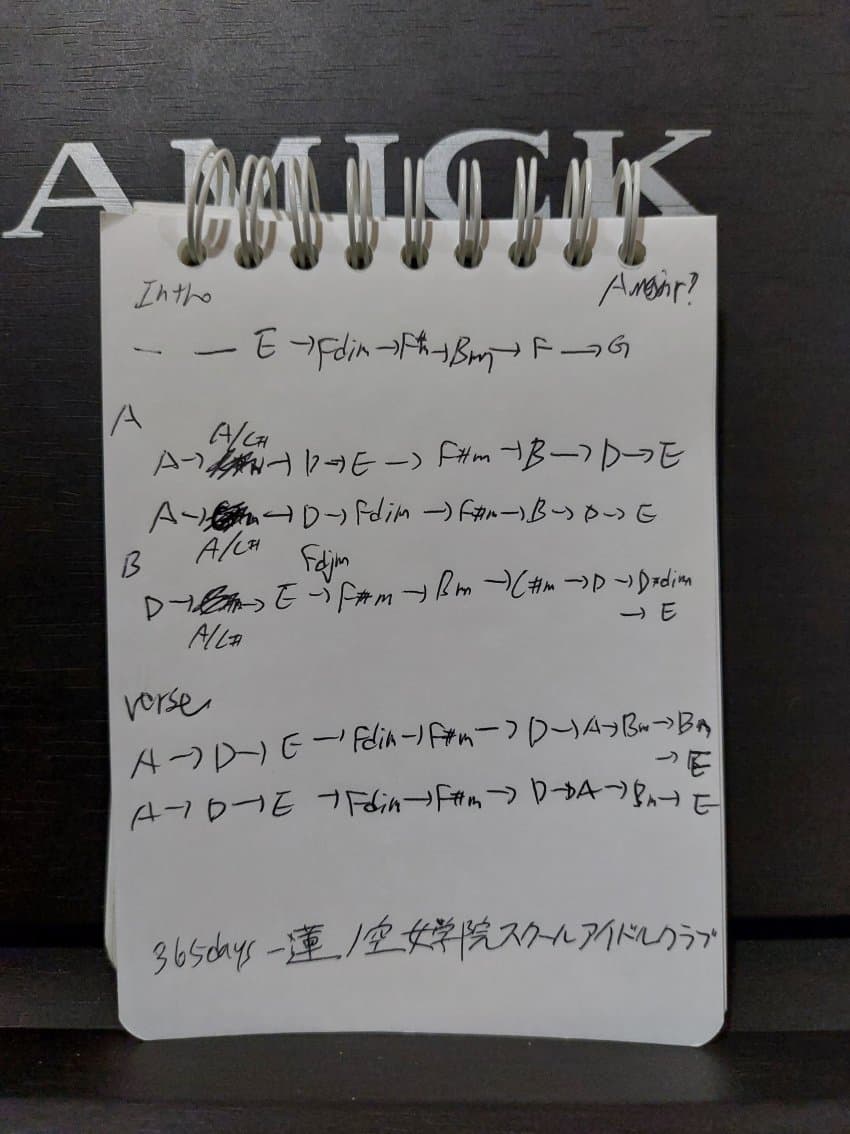 AMICK
Intro
— — E → Fdim → F#m → Bm → F → G
A
A/C#
A → → D → E → F#m → B → D → E
A → → D → Fdim → F#m → B → D → E
A/C#
B
Fdim
D → → E → F#m → Bm → C#m → D → D#dim
→ E
A/C#
verse
A → D → E → Fdim → F#m → D → A → Bm → Bm
→ E
A → D → E → Fdim → F#m → D → A → Bm → E
365days - 蓮ノ空女学院スクールアイドルクラブ